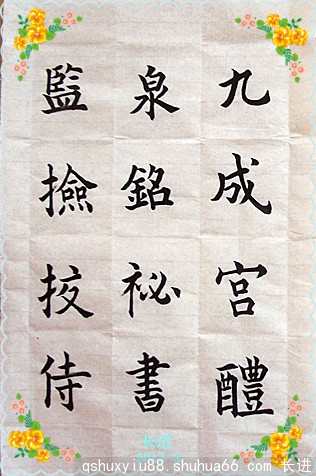 九成宫醴
泉銘祕書
監撿挍侍
qshuxyiu88.shuhua66.com 长进